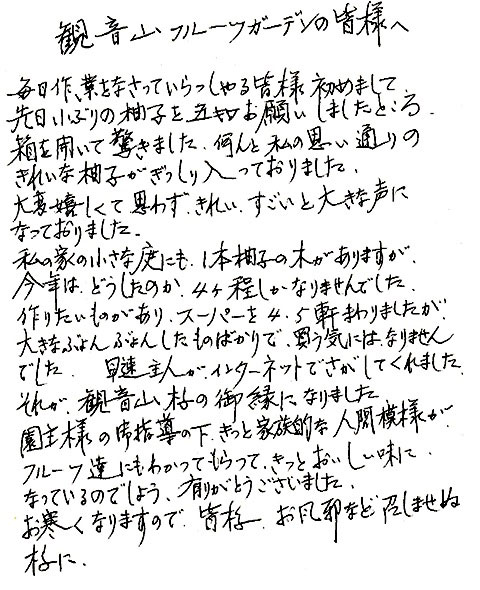 観音山フルーツガーデンの皆様へ
毎日作業をなさっていらっしゃる皆様初めまして
先日小ぶりの柚子を五キロお願いしましたところ
箱を開いて驚きました。何んと私の思い通りの
きれいな柚子がぎっしり入っておりました。
大変嬉しくて思わず、きれい、すごいと大きな声に
なっておりました。
私の家の小さな庭にも、1本柚子の木がありますが、
今年は、どうしたのか、4ヶ程しかなりませんでした。
作りたいものがあり、スーパーを4.5軒まわりましたが
大きなぶよんぶよんしたものばかりで、買う気にはなりません
でした。 早速主人が、インターネットでさがしてくれました。
それが、観音山様の御縁になりました
園主様の御指導の下、きっと家族的な人間模様が
フルーツ達にもわかってもらって、きっとおいしい味に、
なっているのでしょう、有りがとうございました。
お寒くなりますので、皆様、お風邪など召しませぬ
様に、